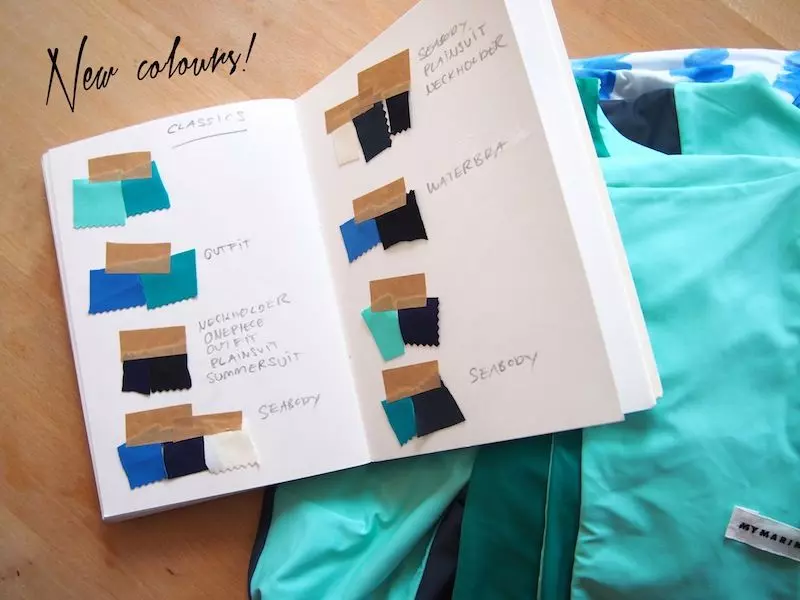 New colours!
CLASSICS
OUTFIT
NECKHOLDER
ONEPIECE
OUTFIT
PLAINSUIT
SUMMERSUIT
SEABODY
SEABODY
PLAINSUIT
NECKHOLDER
WATERBRA
SEABODY
MYMARIN